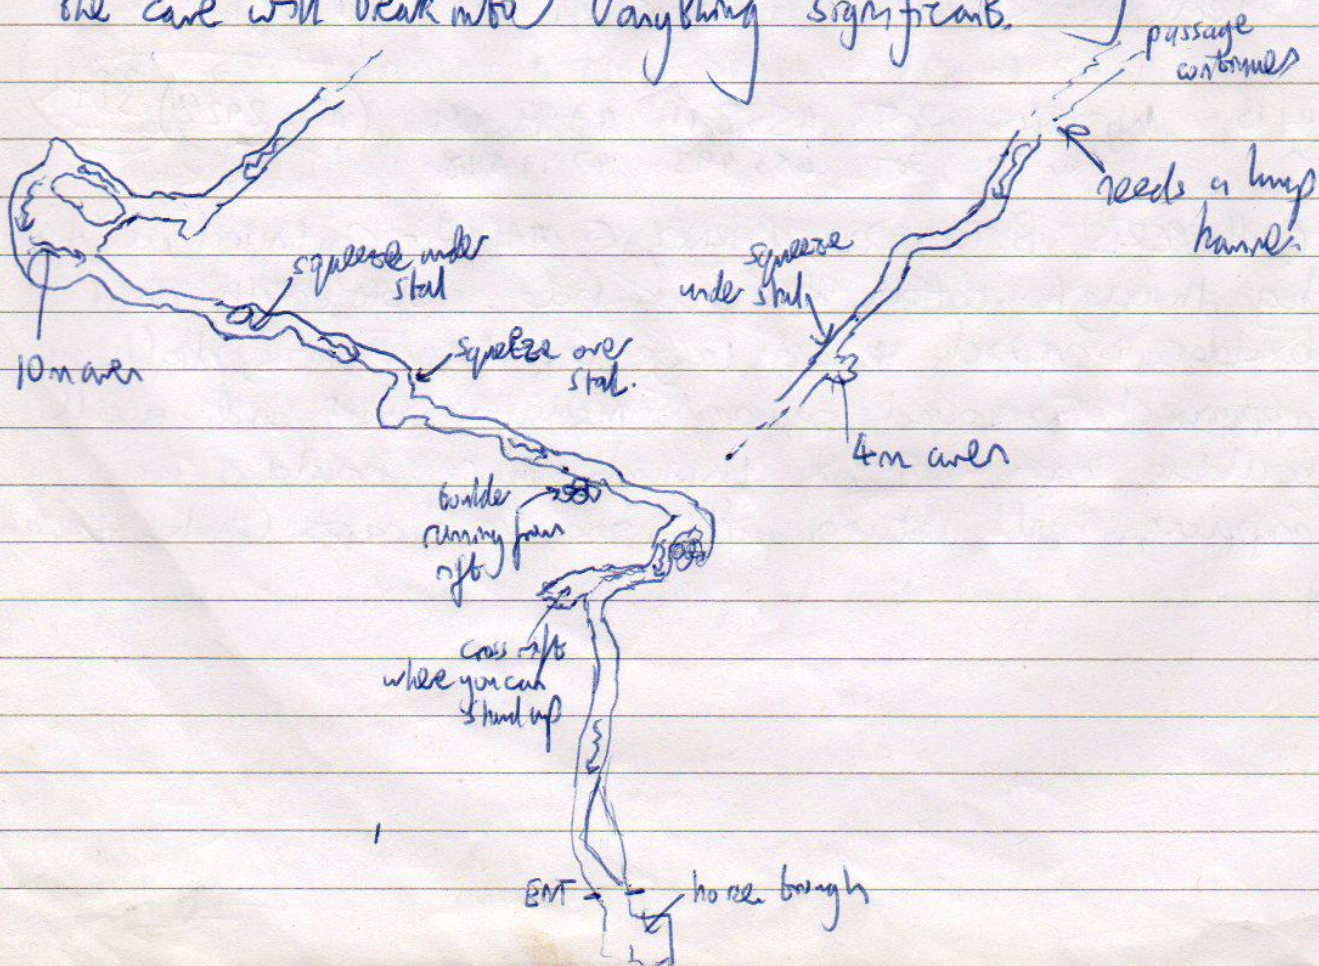 the cave will break into anything significant.
passage
continues
needs a lump
hammer
squeeze under
stal
squeeze
under stal
10m aven
squeeze over
stal.
4m aven
boulder
running from
rift
cross rift
where you can
stand up
ENT
horse trough